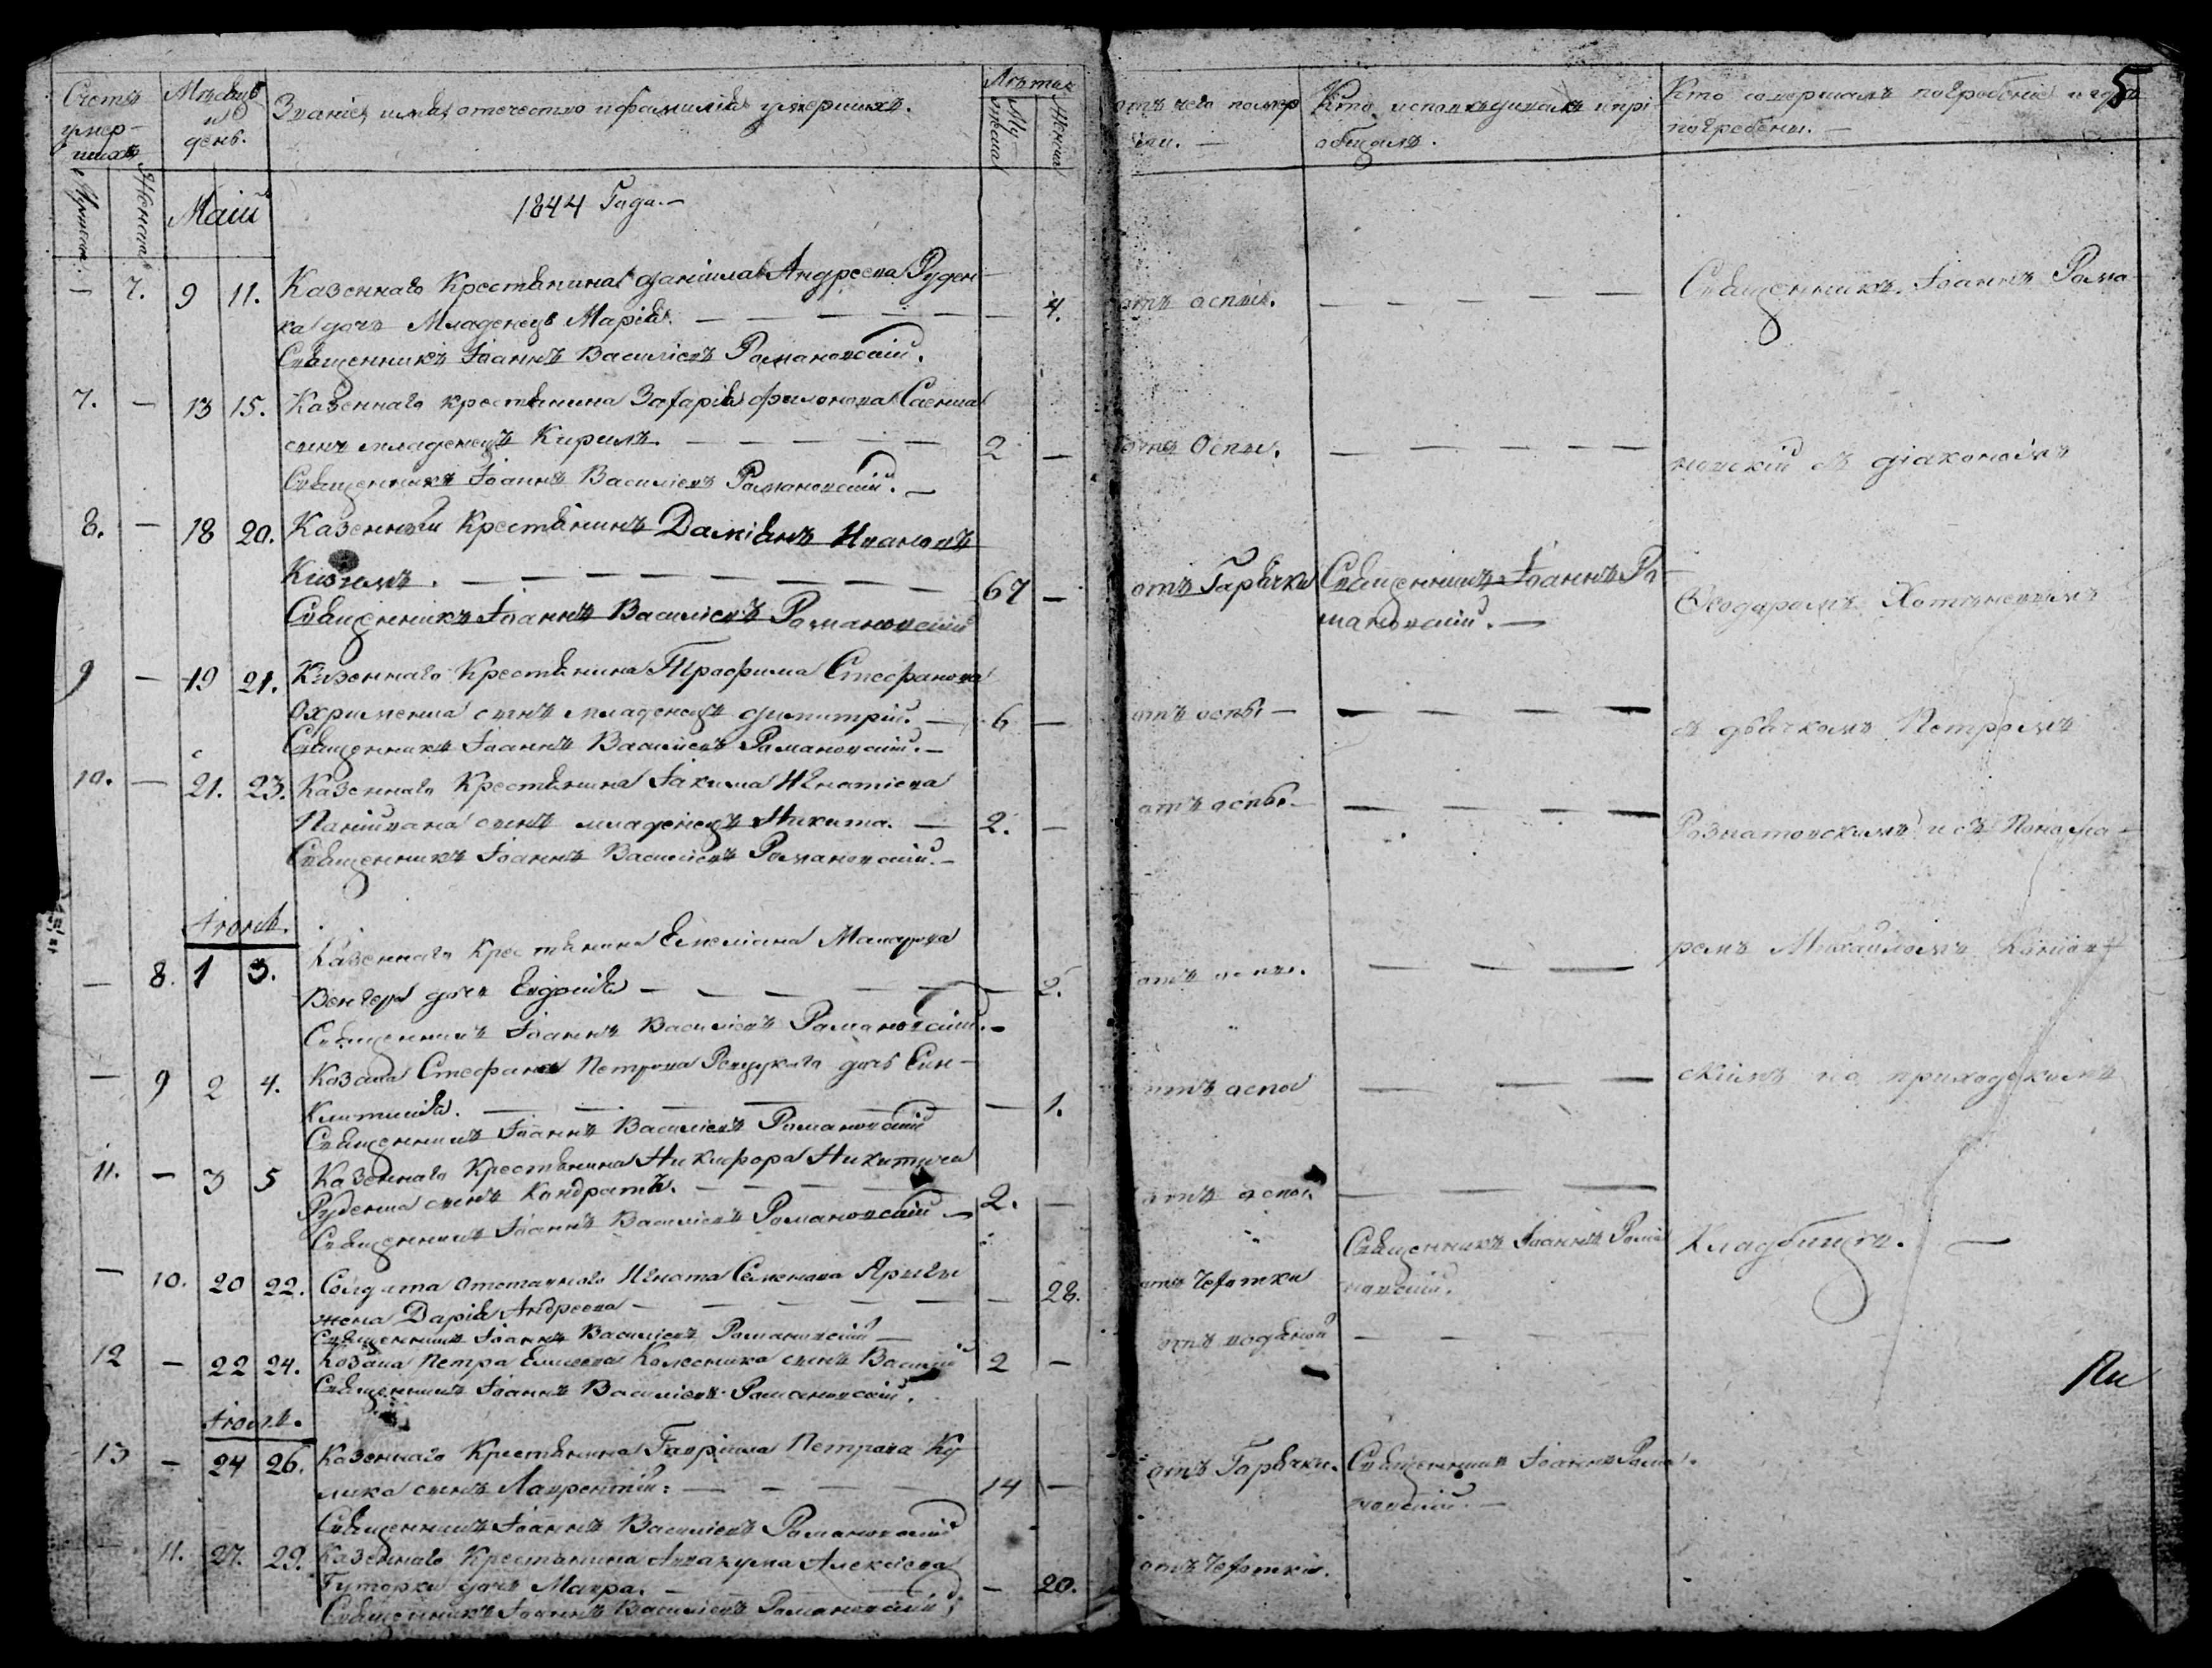 Счетъ умер-шихъ
Мѣсяцъ и день.
Званіе, имя, отечество и фамилія умершихъ.
Лѣта
Мужеска
Женска
Мужеска.
Женска
Маій
1844 Года.—
— 7. 9 11. Казеннаго Крестьянина Даніила Андреева Руден-
ка дочь Младенецъ Марія. — 4.
Священникъ Іоаннъ Василіевъ Романовскій.
7. — 13 15. Казеннаго крестьянина Захарія Филонова Саенка
сынъ младенецъ Кирилъ. 2 —
Священникъ Іоаннъ Василіевъ Романовскій. —
8. — 18 20. Казенный Крестьянинъ Даміянъ Ивановъ
67 —
Священникъ Іоаннъ Василіевъ Романовскій
9 — 19 21. Казеннаго Крестьянина Трофима Стефанова
Охрименка сынъ младенецъ Димитрій. — 6 —
Священникъ Іоаннъ Василіевъ Романовскій. —
10. — 21. 23. Казеннаго Крестьянина Іакима Игнатіева
сынъ младенецъ Никита. — 2. —
Священникъ Іоаннъ Василіевъ Романовскій. —
Іюнь.
— 8. 1 3. Казеннаго Крестьянина Емеліана Макарова
Венгера дочь Евдокія — — 2.
Священникъ Іоаннъ Василіевъ Романовскій. —
— 9 2 4. Козака Стефана Петрова дочь Еин-
Клитикія. — 1.
Священникъ Іоаннъ Василіевъ Романовскій
11. — 3 5 Казеннаго Крестьянина Никифора Никитича
Руденка сынъ Кондратъ. 2. —
Священникъ Іоаннъ Василіевъ Романовскій —
— 10. 20 22. Солдата отставнаго Игната Семенова
жена Дарія Андреева — — 28.
Священникъ Іоаннъ Василіевъ Романовскій —
12 — 22 24. Козака Петра Елисеева Колесника сынъ Василій 2 —
Священникъ Іоаннъ Василіевъ Романовскій.
Іюнь.
13 — 24 26. Казеннаго Крестьянина Гавріила Петрова Ку-
лика сынъ Лаврентій: — 14 —
Священникъ Іоаннъ Василіевъ Романовскій
— 11. 27. 29. Казеннаго Крестьянина Аввакума Алексіева
Гуторки дочь Мавра. — — 20.
Священникъ Іоаннъ Василіевъ Романовскій
5
отъ чего померли. —
Кто исповѣдивалъ и пріобщалъ.
Кто совершалъ погребеніе и гдѣ
погребены. —
отъ оспы. — — — — —
Священникъ Іоаннъ Рома-
отъ Оспы. — — — —
новскій съ діакономъ
отъ Гарячки Священникъ Іоаннъ Ро-
мановскій. —
Ѳеодоромъ
отъ оспы — — — — —
съ дьячкомъ Петромъ
отъ оспы — — — — —
и съ Понома-
отъ оспы. — — —
ремъ Михаиломъ
отъ оспы — — —
скимъ на приходскомъ
отъ оспы — — —
Священникъ Іоаннъ Рома-
новскій.
Кладбищѣ. —
отъ Чехотки
отъ водяной — — —
Пи
отъ Горячки. Священникъ Іоаннъ Рома-
новскій. —
отъ Чехотки.